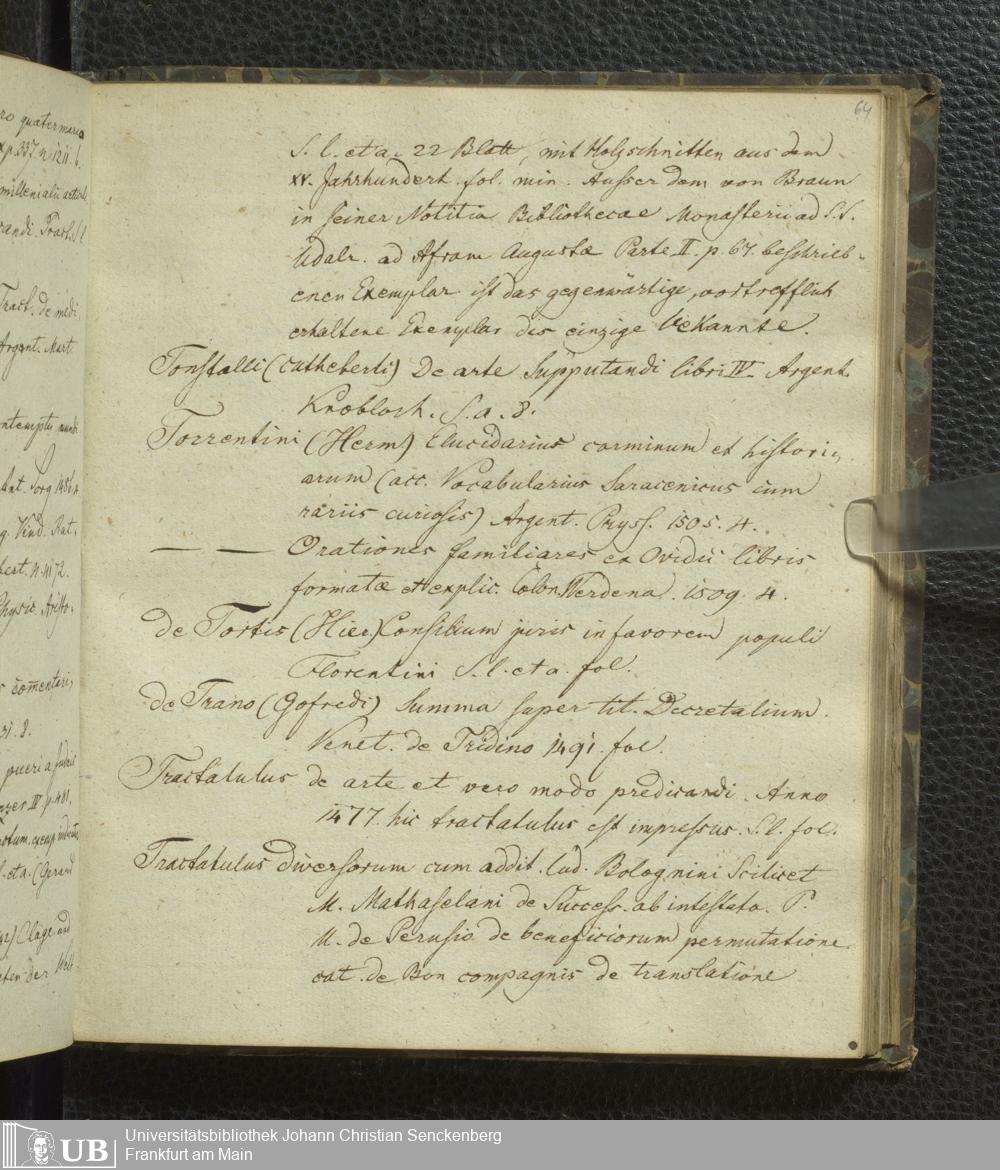 ro quatermaria
p. 337. n. 1211. b.
millenialii
randi. Tract. S. l
Tract. de medi,
Argent. Mart.
ontemptu mundi
Ant. Sorg
g. Vind. Rat,
bert. n.
Physic. Aristo,
comentari,
31. 8.
pueri a
IV. p. 481.
S. l. et a. (Gerard
Clage und
der Welt
64
S. l. et a. 22 Blatt, mit Holzschnitten aus dem
XV. Jahrhundert. fol. min. Ausser dem von Braun
in seiner Notitia Bibliothecae Monasterii ad S. S.
Udalr. ad Afram Augustæ Parte II. p. 67. beschrieb-
enen Exemplar ist das gegenwärtige, vortrefflich
erhaltene Exemplar das einzige bekannte.
Tonstalli (Cutheberti) De arte Supputandi libri IV. Argent.
Knobloch. S. a. 8.
Torrentini (Herm) Elucidarius carminum et histori,
arum (acc. Vocabularius Saracenicus cum
rariis curiosis) Argent. Pryss. 1505. 4.
— — Orationes familiares ex Ovidii libris
formatæ et explic. Colon Werdena. 1509. 4.
de Tortis (Hier) Consilium juris in favorem populi
Florentini S. l. et a. fol.
de Trano (Gofredi) Summa super tit. Decretalium.
Venet. de Tridino 1491. fol.
Tractatulus de arte et vero modo predicandi. Anno
1477. hic tractatulus est impressus. S. l. fol.
Tractatulus diversorum cum addit. Lud. Bolognini Scilicet
M. Mathaselani de Success. ab intestato. P.
U. de Perusio de beneficiorum permutatione.
cat. de Bon compagnis de translatione
UB
Universitätsbibliothek Johann Christian Senckenberg
Frankfurt am Main